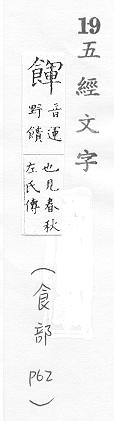 19五經文字
餫
音運
野饋
也見春秋
左氏傳
(食部 P62)